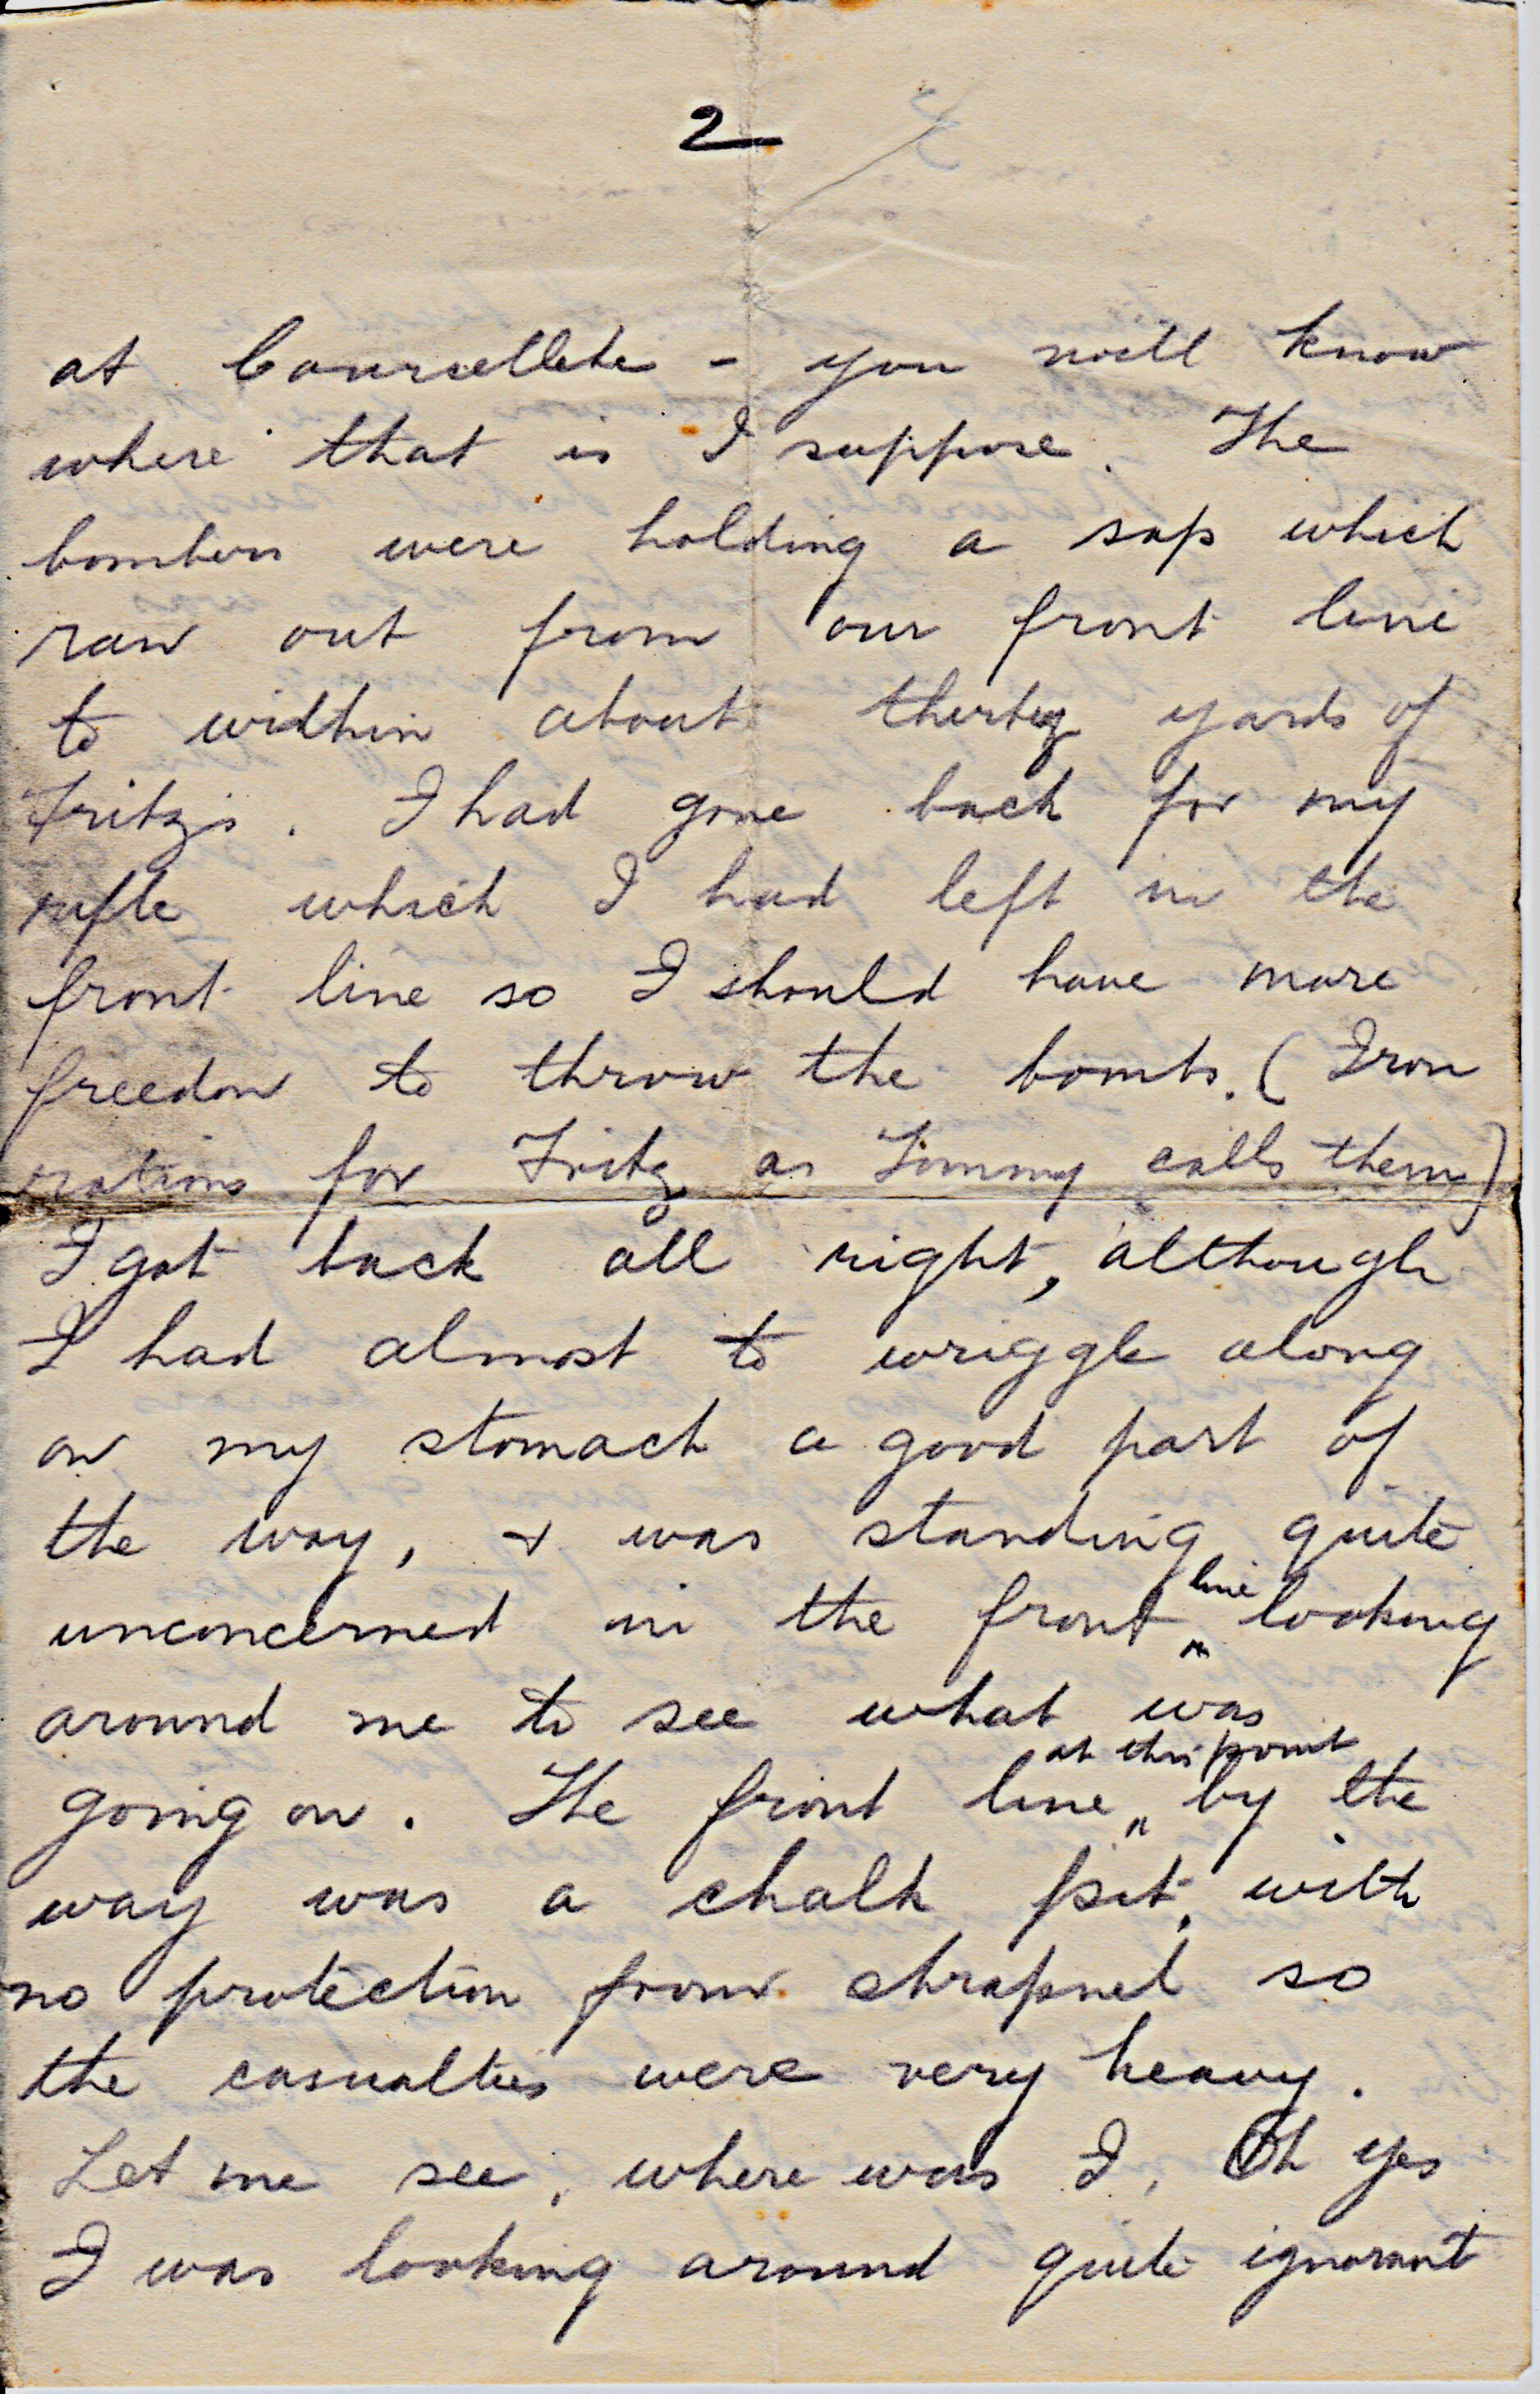 2
at Courcellete - you will know
where that is I suppose. The
bombers were holding a sap which
ran out from our front line
to widthin about thirty yards of
Fritz's. I had gone back for my
rifle which I had left in the
front line so I should have more
freedom to throw the bombs. (Iron
rations for Fritz as Tommy calls them)
I got back all right, although
I had almost to wriggle along
on my stomach a good part of
the way, & was standing quite
unconcerned in the front line looking
around me to see what was
going on. The front line at this point by the
way was a chalk pit, with
no protection from shrapnel so
the casualties were very heavy.
Let me see, where was I, Oh yes
I was looking around quite ignorant